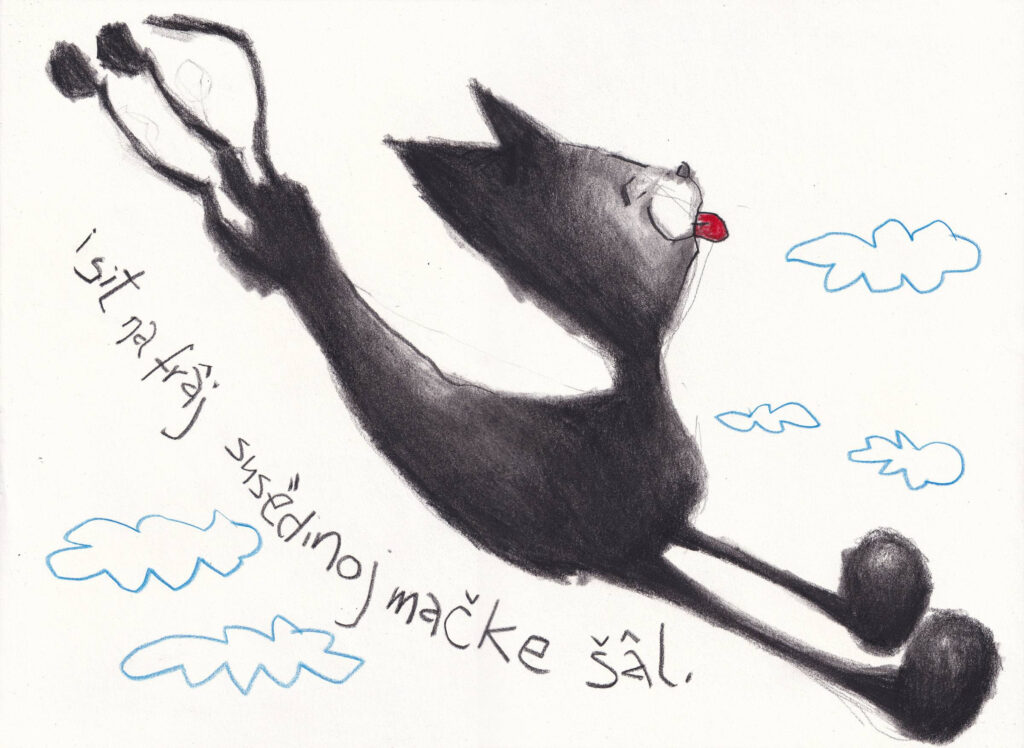 i sit na frâj susëdinoj mačke šâl.